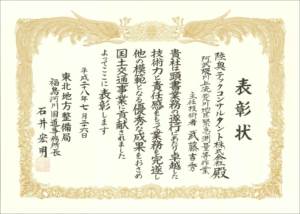 表彰状
陸奥テックコンサルタント株式会社殿
阿武隈川上流荒川地区緊急測量等作業
主任技術者 武藤吉秀
貴社は頭書業務の遂行にあたり卓越した
技術力と責任感をもって業務を完遂し
他の模範となる優秀な成果をおさめ
国土交通事業に貢献されました
よってここに表彰します
平成二十八年七月二十六日
東北地方整備局
福島河川国道事務所長
石井宏明